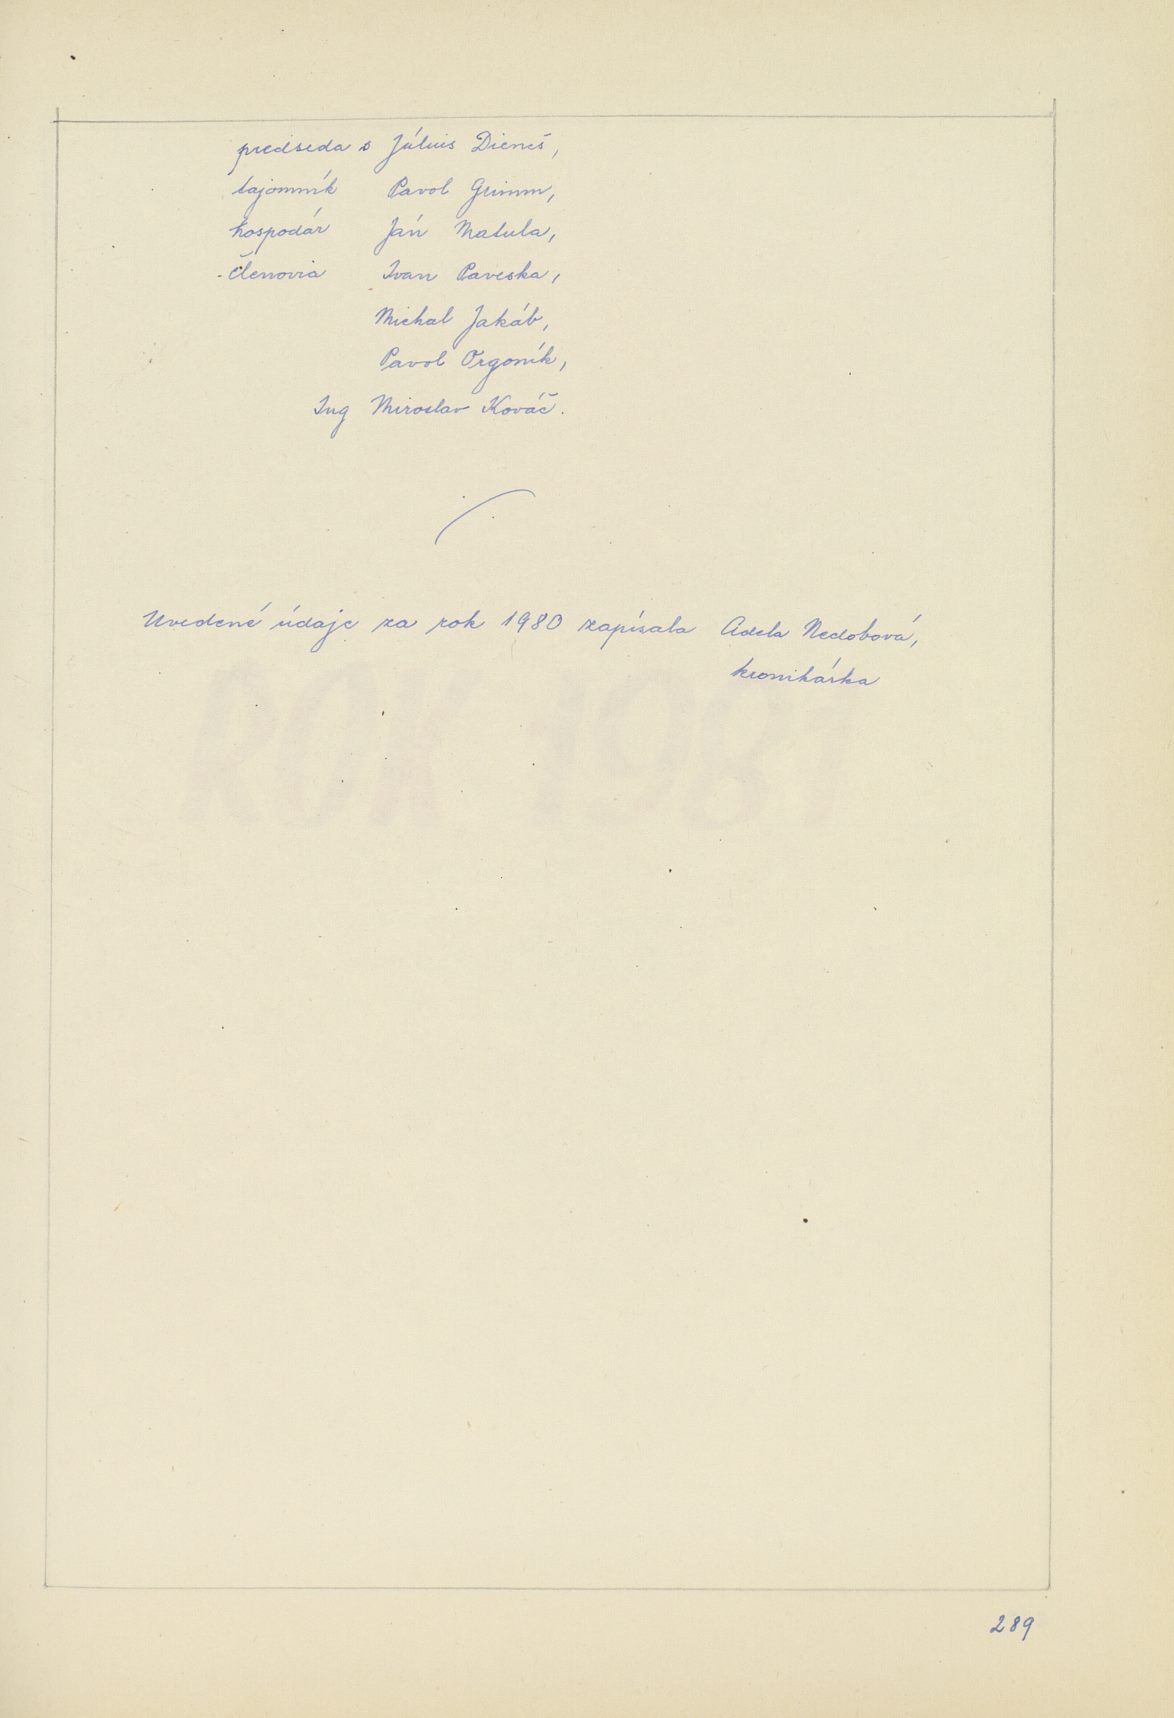 predseda s Július Dieneš,
tajomník Pavol Grimm,
hospodár Ján Matula,
členovia Ivan Paveska,
Michal Jakáb,
Pavol Orgoník,
Ing Miroslav Kováč.
Uvedené údaje za rok 1980 zapísala Adela Nedobová,
kronikárka
ROK 1981
289